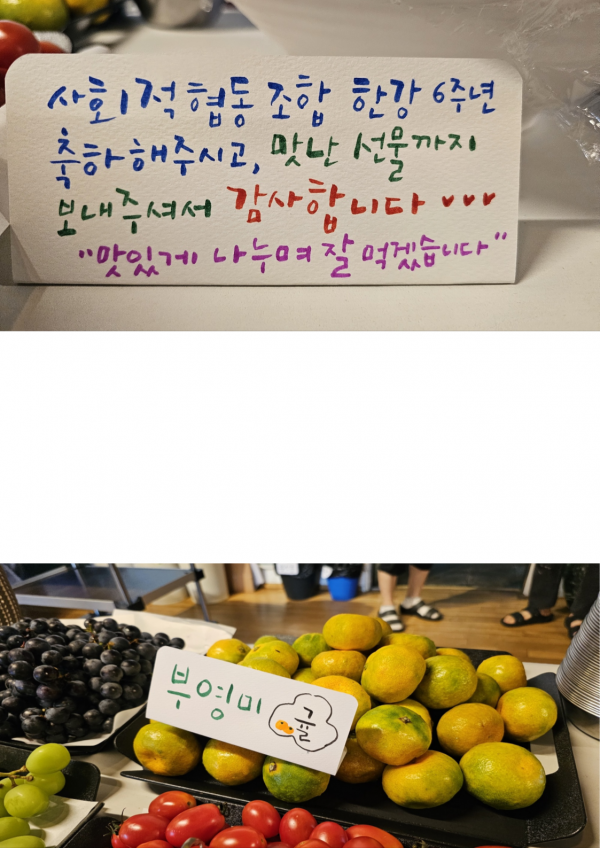 사회적협동조합 한강 6주년
축하해주시고, 맛난 선물까지
보내주셔서 감사합니다 ♥♥♥
"맛있게 나누며 잘 먹겠습니다"
부영미
귤